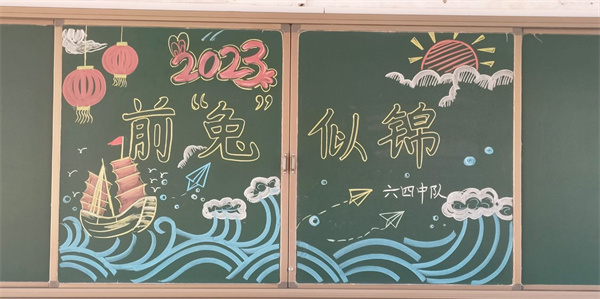 2023
前“兔”似锦
六四中队